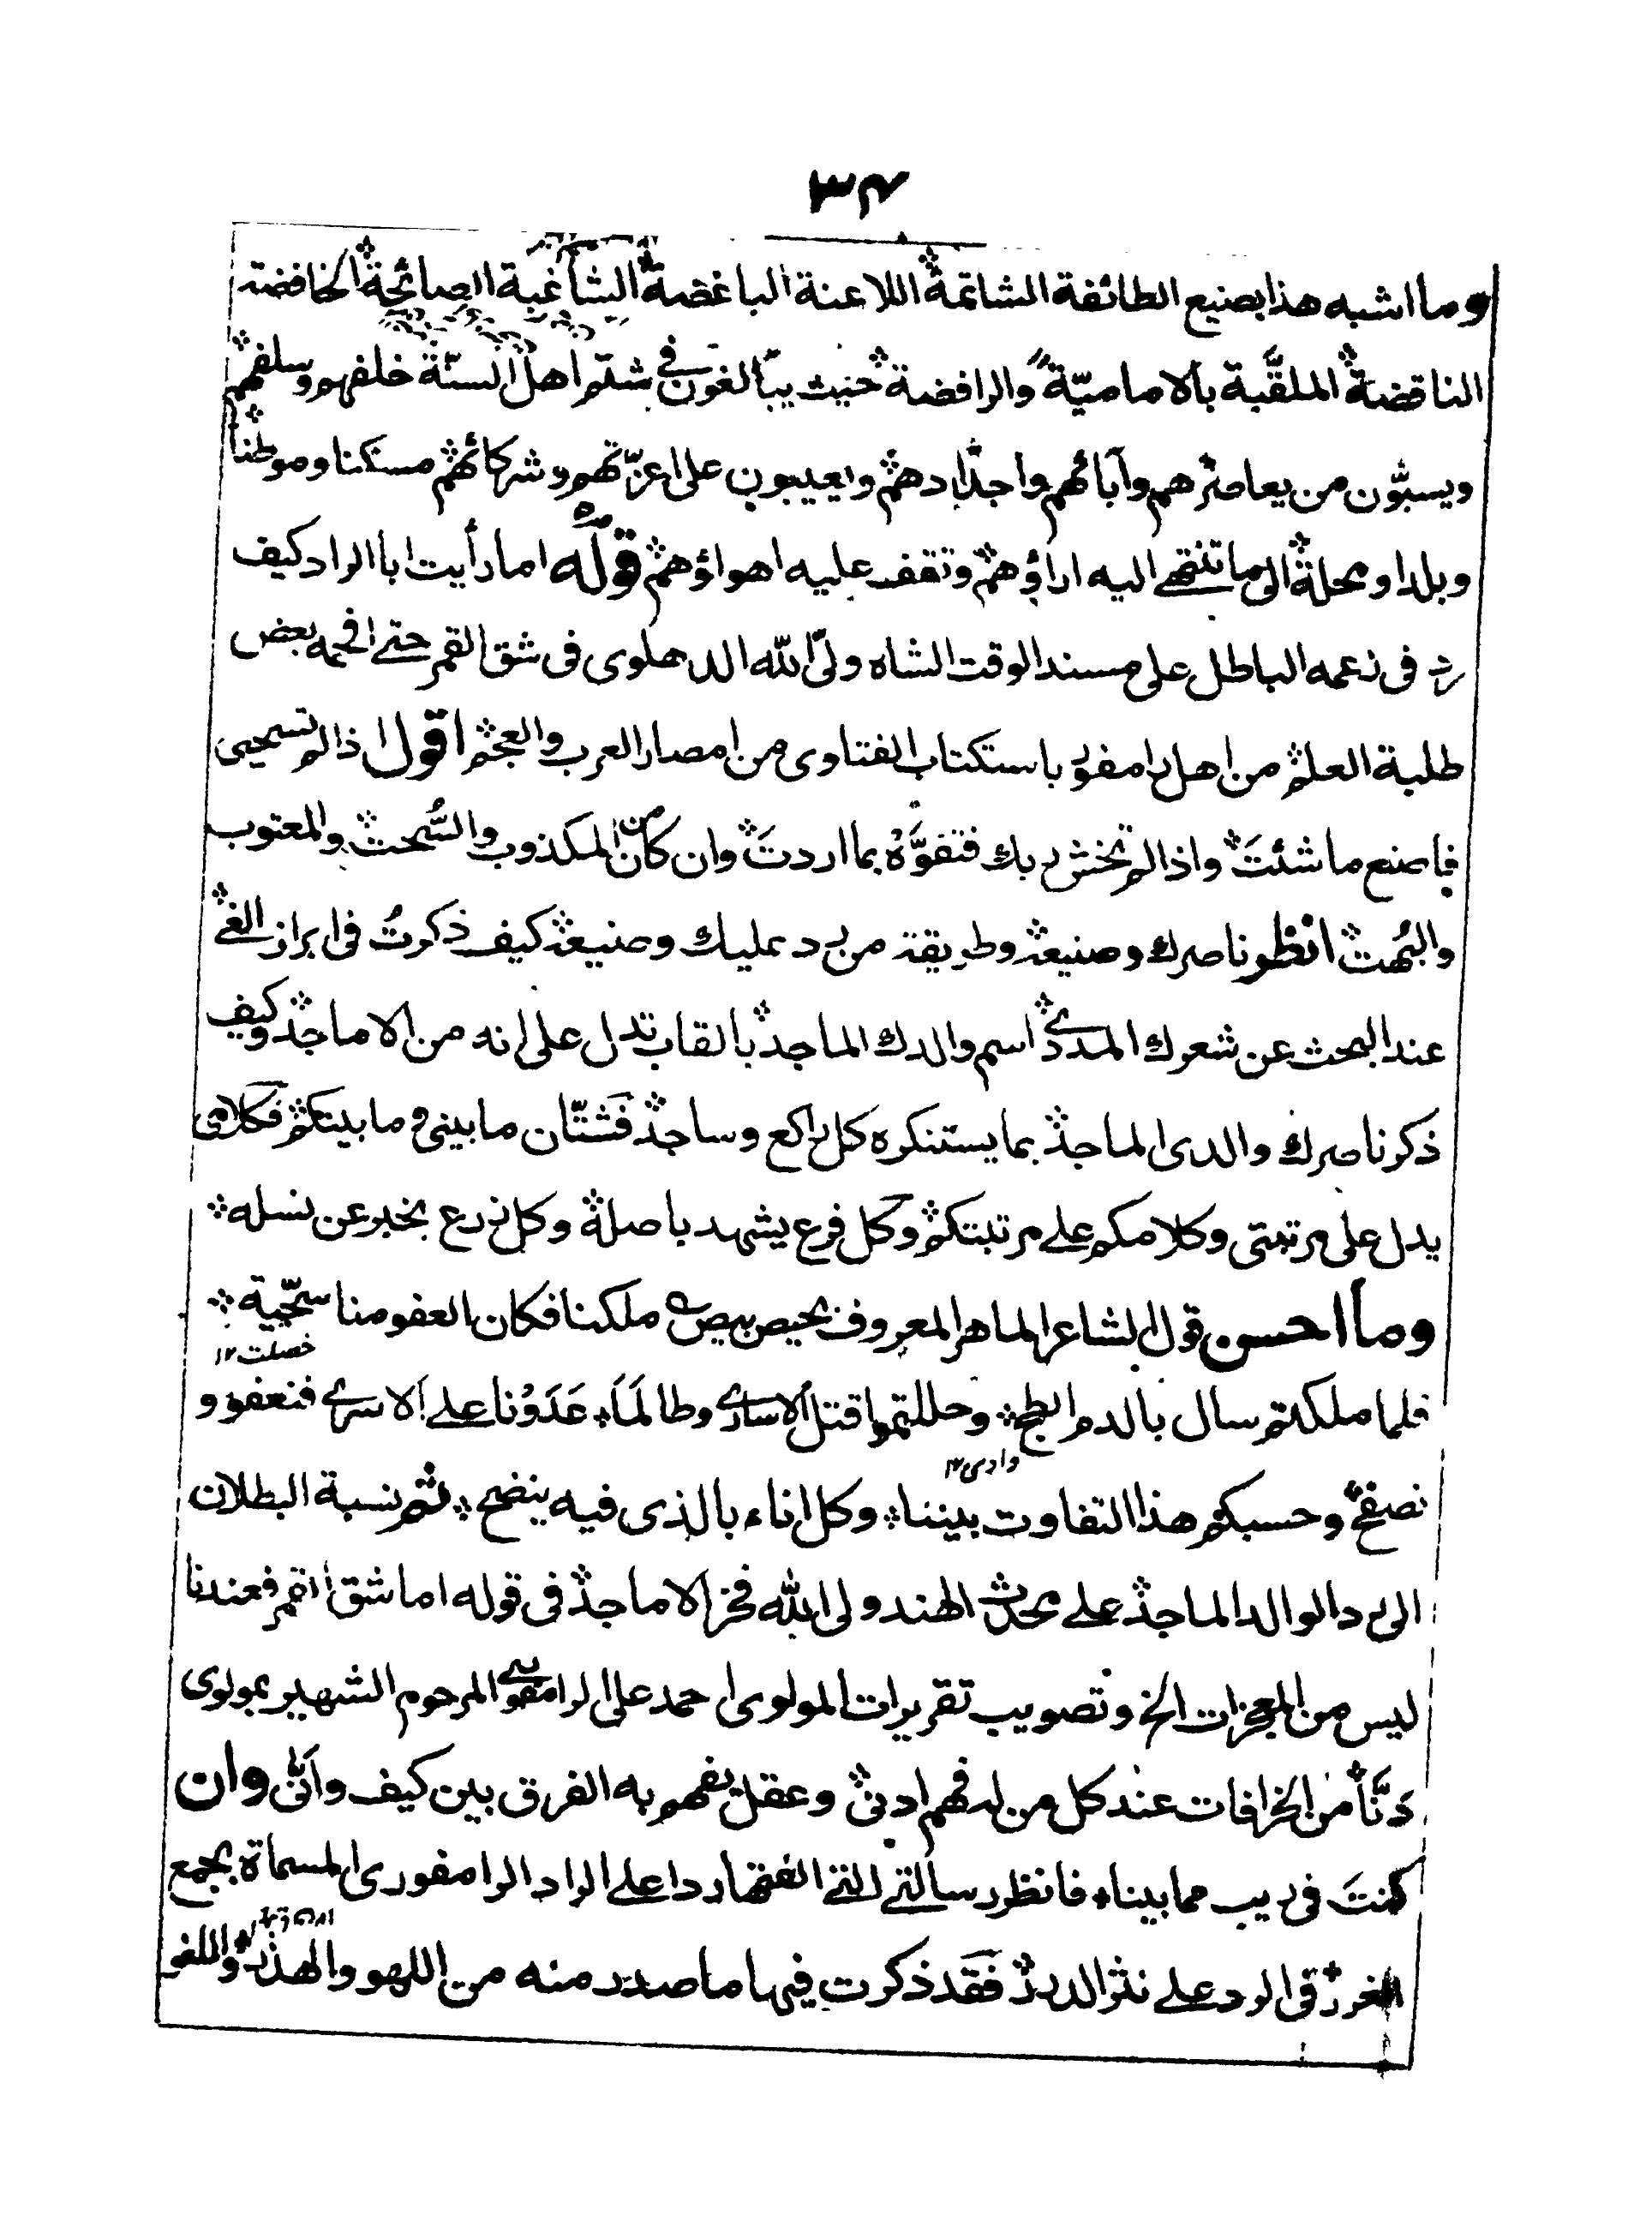 ٣٤
وما اشبه هذا بصنيع الطائفة الشاتمة اللاعنة الباغضة الشاغبة الصائحة الخافضة
الناقضة الملقّبة بالامامیّة والرافضة حيث يبالغون فى شتم اهل السنّة خلفهم وسلفهم
ويسبّون من يعاصرهم وآبائهم واجدادهم ويعيبون على اعزّتهم وشركائهم مسكنا وموطنا
وبلدا ومحلة الى ما تنتهے اليه اراؤهم وتقف عليه اهواؤهم قوله اما رأيت ابا الراد كيف
رد فى زعمه الباطل على مسند الوقت الشاه ولىّ الله الدهلوى فى شق القمر حتے افحمه بعض
طلبة العلم من اهل رامفور باستكتاب الفتاوى من امصار العرب والعجم اقول اذا لم تستحيى
فاصنع ما شئتَ واذا لم تخش ربك فتفوَّهْ بما اردتَ وان كان من المكذوب والسُّحت والمعتوب
والبُهت انظر ناصرك وصنيعه وطريقة من يرد عليك وصنيعه كيف ذكرتُ فى ابراز الغے
عند البحث عن شعرك المدى اسم والدك الماجد بالقاب تدل على انه من الاماجد وكيف
ذكر ناصرك والدى الماجد بما يستنكره كل راكع وساجد فَشتّان ما بينى وما بينكم فكلامى
يدل على مرتبتى وكلامكم علے مرتبتكم وكل فرع يشهد باصلة وكل زرع يخبر عن نسله
وما احسن قول الشاعر الماهر المعروف بحيص بيص ملكنا فكان العفو منا سجّية
خصلت ١٢
فلما ملكتم سال بالدم ابطح وحللتموا قتل الاسارے وطالمَا عَدَوْنا علے الاسرے فنعفو و
وادى ١٢
نصفح وحسبكم هذا التفاوت بيننا وكل اناء بالذى فيه ينضح ثم نسبة البطلان
الى رد الوالد الماجد علے محدث الهند ولى الله فخر الاماجد فى قوله اما شق القمر فعندنا
ليس من المعجزات الخ وتصويب تقريرات المولوى احمد على الرامفورے المرحوم الشهير بمولوى
دَنّا من الخرافات عند كل من له فهم ادنى وعقل يفهم به الفرق بين كيف وانّى وان
كنتَ فى ريب مما بينا فانظر رسالتے التے الفتها ردا علے الراد الرامفورى المسماة بجمع
الغرر فى الرد علے نثر الدرر فقد ذكرت فيها ما صدر منه من اللهو والهذر واللغو